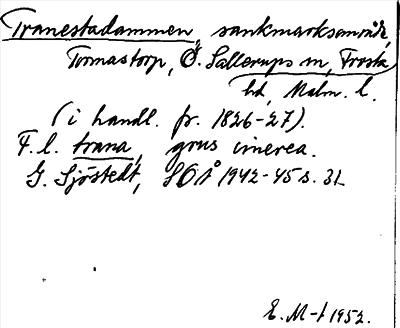 Tranestadammen, sankmarksområde,
Tormastorp, Ö. Sallerups sn, Frosta
hd, Malm. l.
(i handl. fr. 1826-27).
F. l. trana, grus cinerea.
G. Sjöstedt, SOÅ 1942-45 s. 31.
E. M-t 1952.